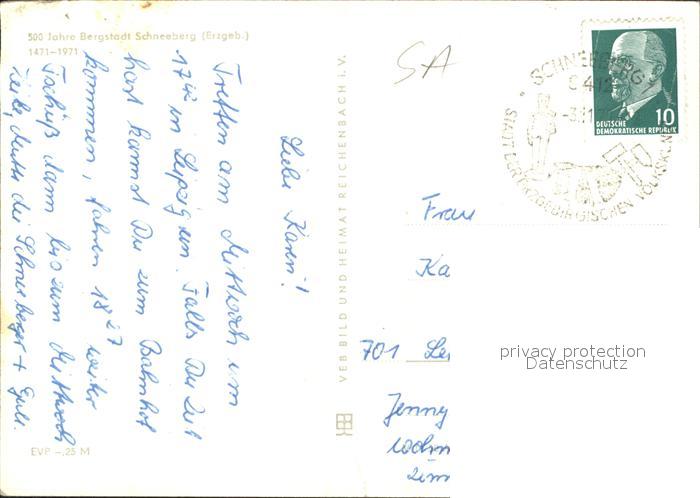 500 Jahre Bergstadt Schneeberg (Erzgeb.)
1471-1971
Liebe Karin!
Treffen am Mittwoch um
17 in Leipzig ein. Falls Du Zeit
hast kannst Du zum Bahnhof
kommen, fahren 18 27 weiter
Tschüß dann bis zum Mittwoch
die Schneeberger +
EVP -,25 M
VEB BILD UND HEIMAT REICHENBACH I. V.
SA
SCHNEEBERG
STADT DER ERZGEBIRGISCHEN VOLKSKUNST
10
DEUTSCHE
DEMOKRATISCHE REPUBLIK
Frau
Ka
701 Le
Jenny
wohn
privacy protection
Datenschutz